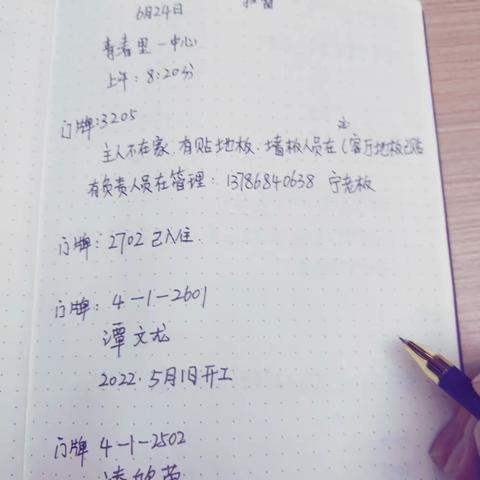 6月24日
青春里一中心
上午: 8:20分
门牌:3205
主人不在家、有贴地板、墙板人员在(客厅地板已贴
有负责人员在管理: 13786840638 宁老板
门牌: 2702 已入住
门牌: 4-1-2601
谭文龙
2022. 5月1日开工
门牌 4-1-2502